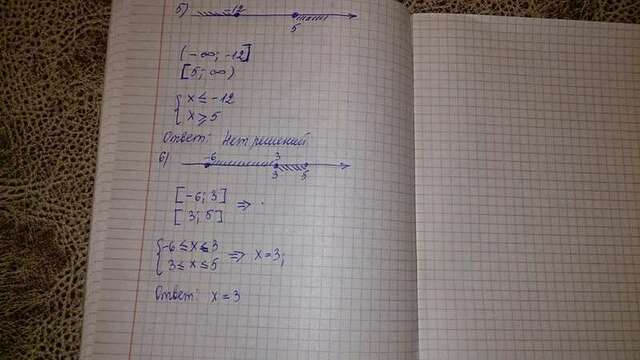 5) -12
5
(-∞; -12]
[5; ∞)
{ x ≤ -12
x ≥ 5
Ответ: Нет решений
6) -6 3
3 5
[-6; 3] ⇒
[3; 5]
{ -6 ≤ x ≤ 3 ⇒ x = 3;
3 ≤ x ≤ 5
Ответ: x = 3